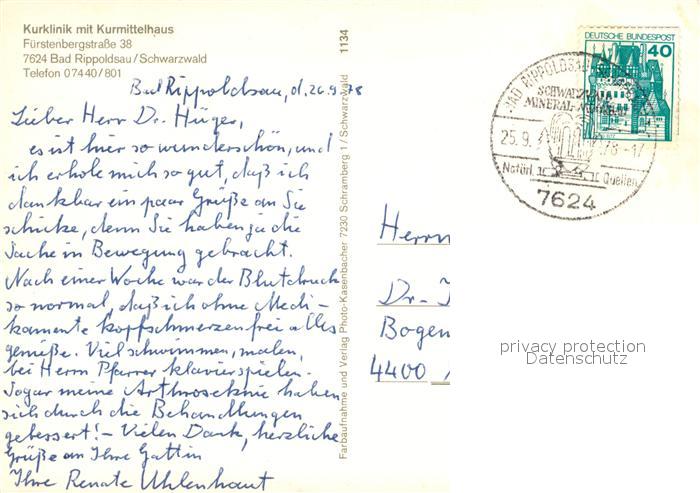 Kurklinik mit Kurmittelhaus
Fürstenbergstraße 38
7624 Bad Rippoldsau/Schwarzwald
Telefon 07440/801
Bad Rippoldsau, d. 26.9.78
Lieber Herr Dr. Hüger,
es ist hier so wunderschön, und
ich erhole mich so gut, daß ich
dankbar ein paar Grüße an Sie
schicke, denn Sie haben ja die
Sache in Bewegung gebracht.
Nach einer Woche war der Blutdruck
so normal, daß ich ohne Medi-
kamente kopfschmerzenfrei alles
genieße. Viel schwimmen, malen,
bei Herrn Pfarrer klavierspielen.
Sogar meine Arthroseknie haben
sich durch die Behandlungen
gebessert! – Vielen Dank, herzliche
Grüße an Ihre Gattin
Ihre Renate Uhlenhaut
1134
Farbaufnahme und Verlag Photo-Kasenbacher 7230 Schramberg 1/Schwarzwald
DEUTSCHE BUNDESPOST
40
BAD RIPPOLDSAU
SCHWARZWALD
MINERAL-MOORBAD
25.9.
78-17
Natürl. Quellen
7624
Herrn
Dr.
Bogen
4400
privacy protection
Datenschutz